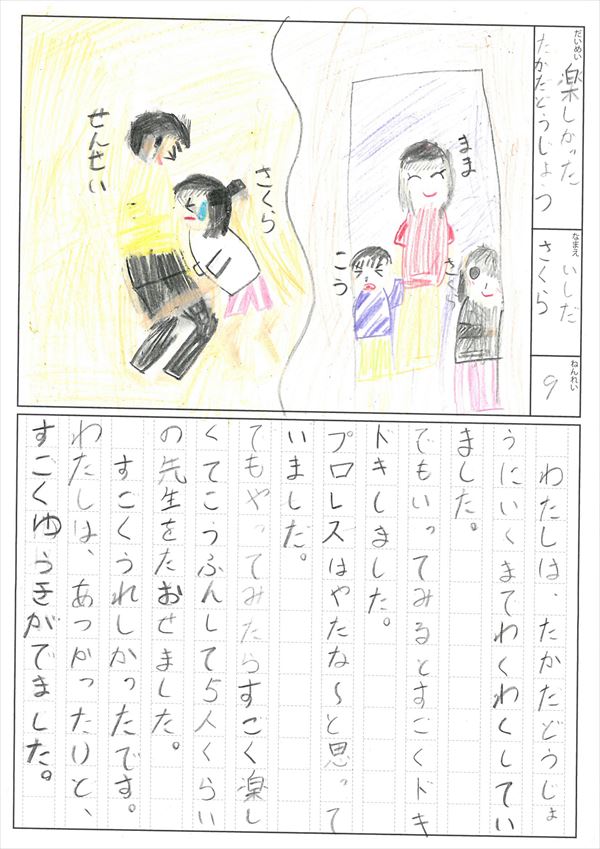 だいめい
楽しかった
たかだどうじょう
なまえ
いしだ
さくら
ねんれい
9
まま
こう
さくら
さくら
せんせい
わたしは、たかたどうじょ
うにいくまてわくわくしてい
ました。
でもいってみるとすごくドキ
ドキしました。
プロレスはやだな～と思って
いました。
てもやってみたらすごく楽し
くてこうふんして5人くらい
の先生をたおせました。
すこくうれしかったです。
わたしは、あつかったけと、
すごくゆうきがでました。